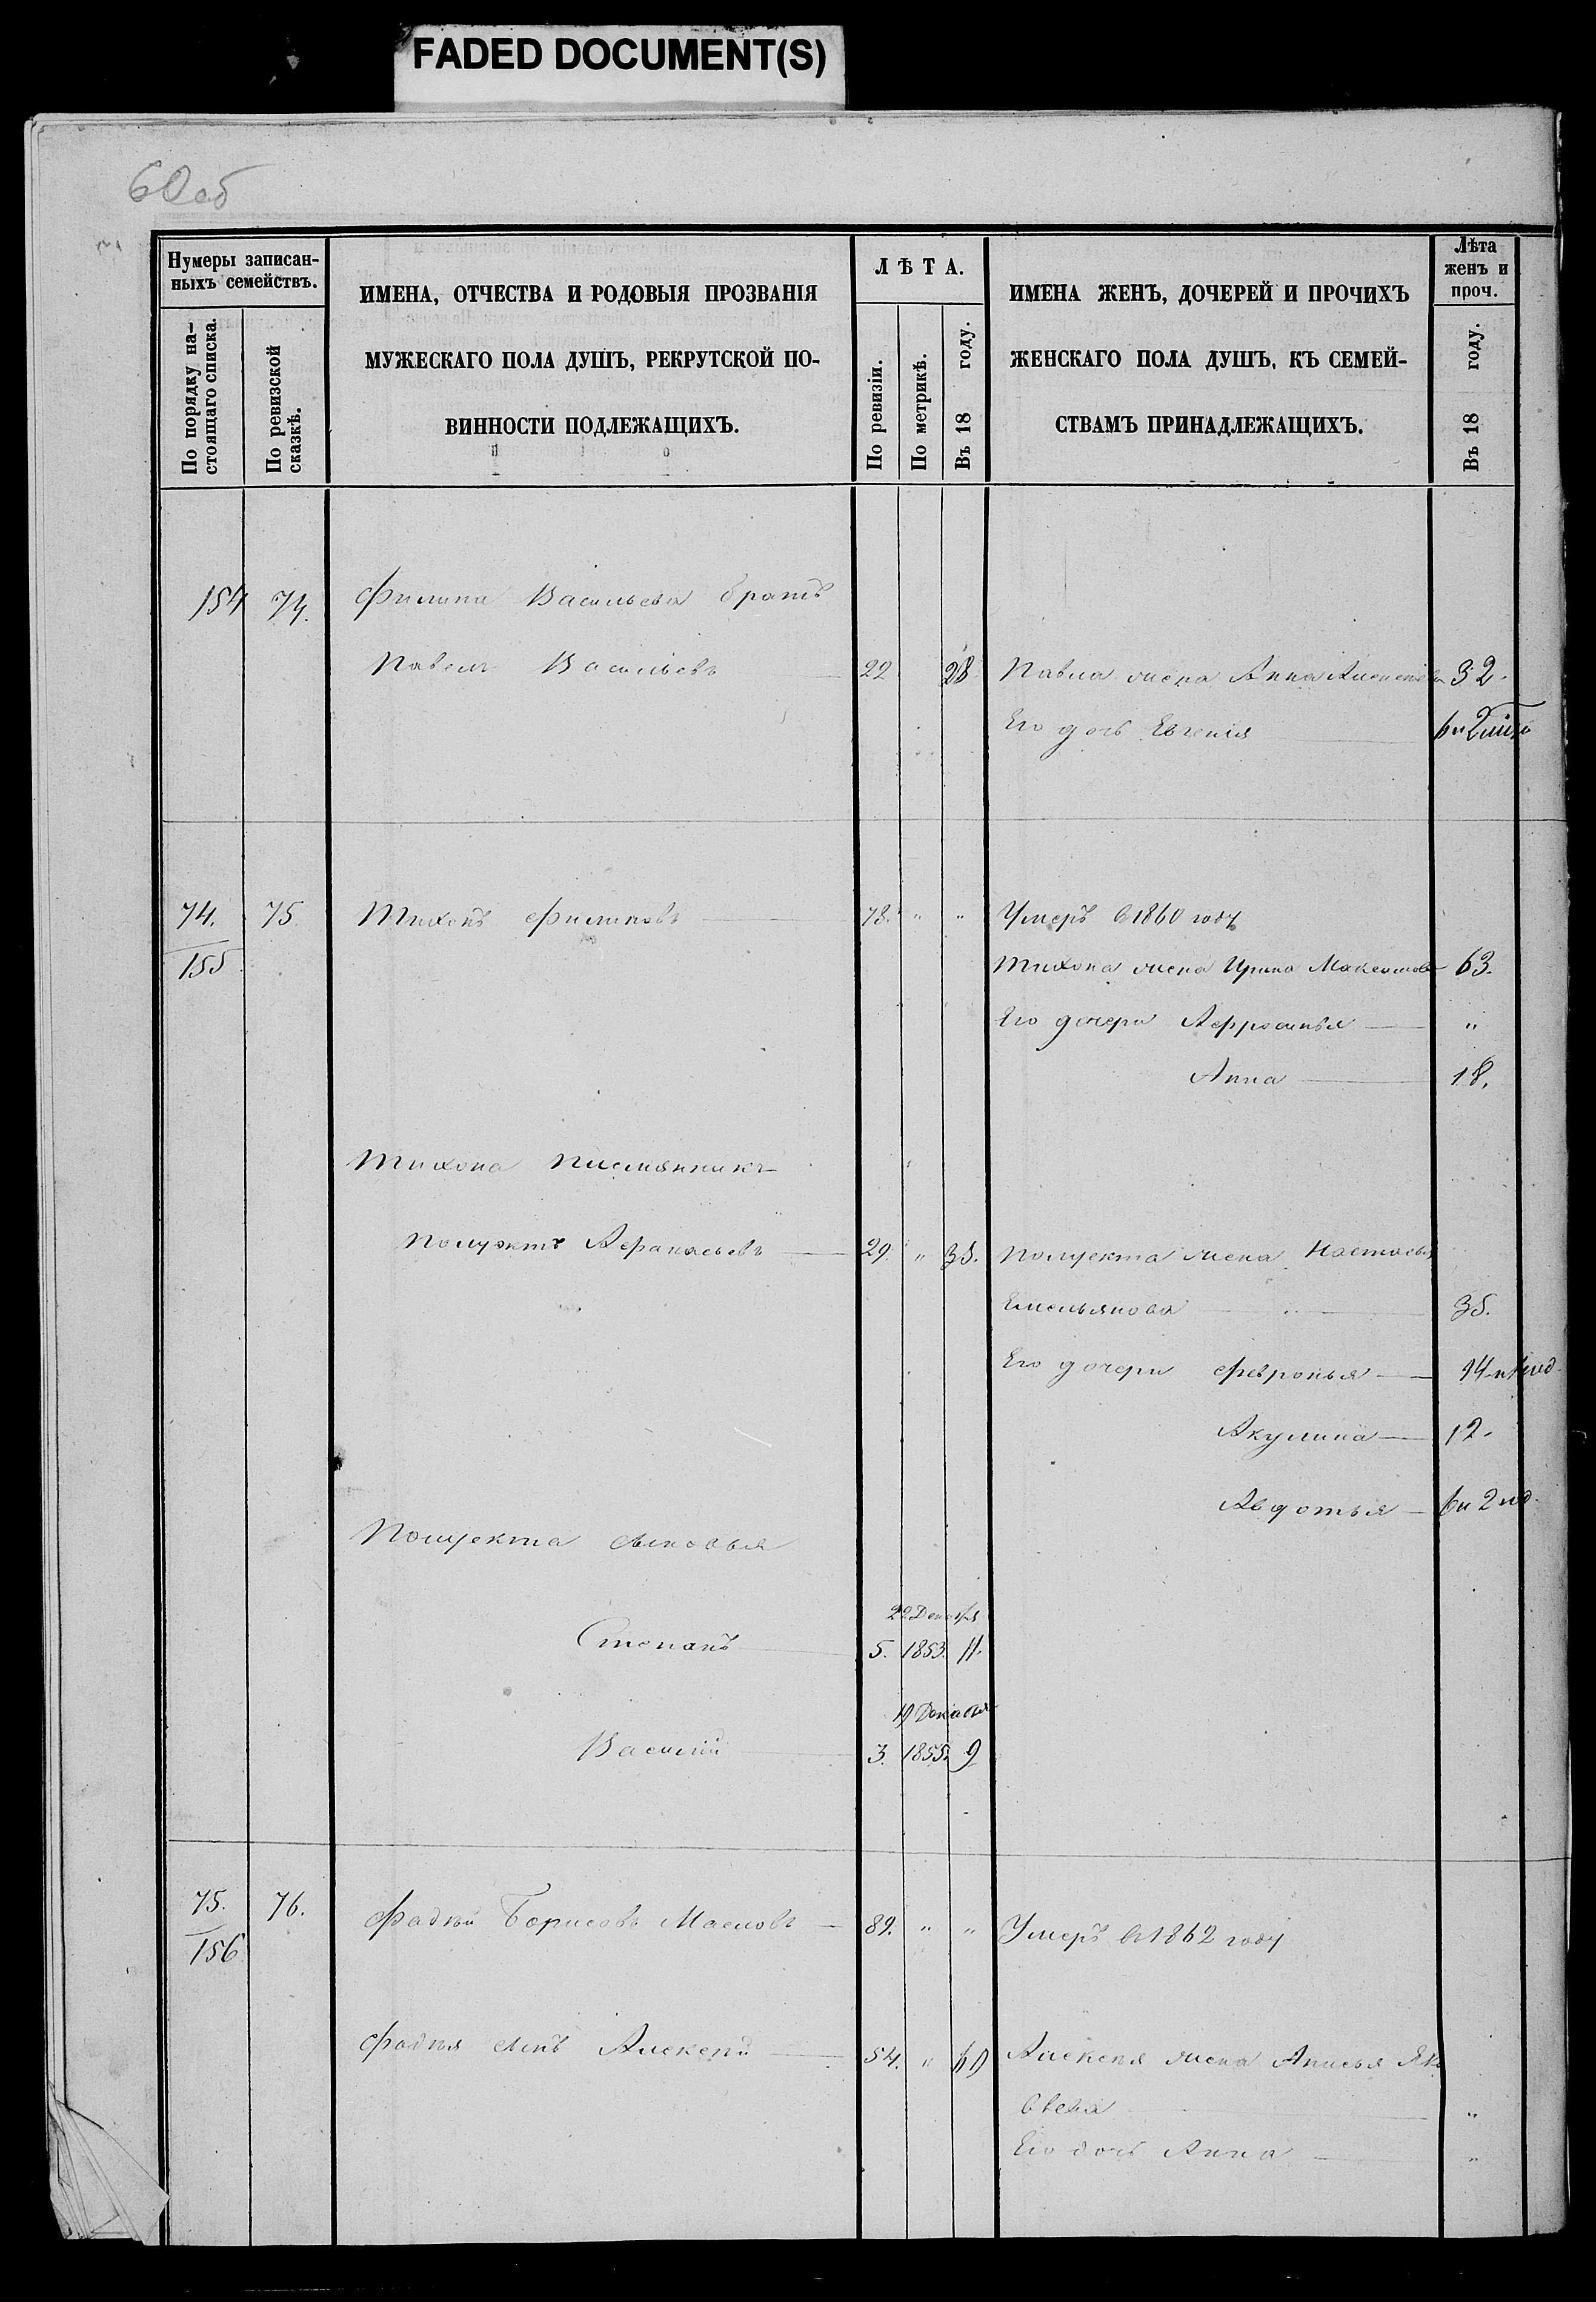 FADED DOCUMENT(S)
60об
Нумеры записан-
ныхъ семействъ.
По порядку на-
стоящаго списка.
По ревизской
сказкѣ.
ИМЕНА, ОТЧЕСТВА И РОДОВЫЯ ПРОЗВАНІЯ
МУЖЕСКАГО ПОЛА ДУШЪ, РЕКРУТСКОЙ ПО-
ВИННОСТИ ПОДЛЕЖАЩИХЪ.
ЛѢТА.
По ревизіи.
По метрикѣ.
Въ 18 году.
ИМЕНА ЖЕНЪ, ДОЧЕРЕЙ И ПРОЧИХЪ
ЖЕНСКАГО ПОЛА ДУШЪ, КЪ СЕМЕЙ-
СТВАМЪ ПРИНАДЛЕЖАЩИХЪ.
Лѣта
женъ и
проч.
Въ 18 году.
154 74. Филипа Васильева братъ
Павелъ Васильевъ 22 28 Павла жена Анна 32.
Его дочь Евгенія
74. 75. Тихонъ Филиповъ 78. " " Умеръ в 1860 году
155 Тихона жена Ирина Максимова 63.
Его дочери Афросинья "
Анна 18.
Тихона племянникъ
Полуэктъ Афанасьевъ 29. " 35. Полуекта жена Настасья
Емельянова 35.
Его дочери Февронья 14
Акулина 12.
Авдотья
Полуекта сыновья
22 Декабря
Степанъ 5. 1853. 11.
19 Декабря
Василій 3. 1855. 9
75. 76. Фадѣй Борисовъ Масловъ 89. " " Умеръ в 1862 году
156
Фадѣя сынъ Алексѣй 54. " 60 Алексѣя жена Анисья Яко
влева "
Его дочь Анна "